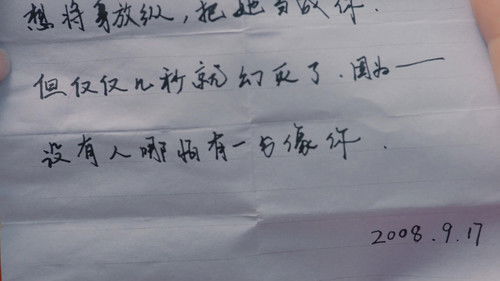 想将身放纵，把她当成你．
但仅仅几秒就幻灭了．因为——
没有人哪怕有一方像你．
2008.9.17